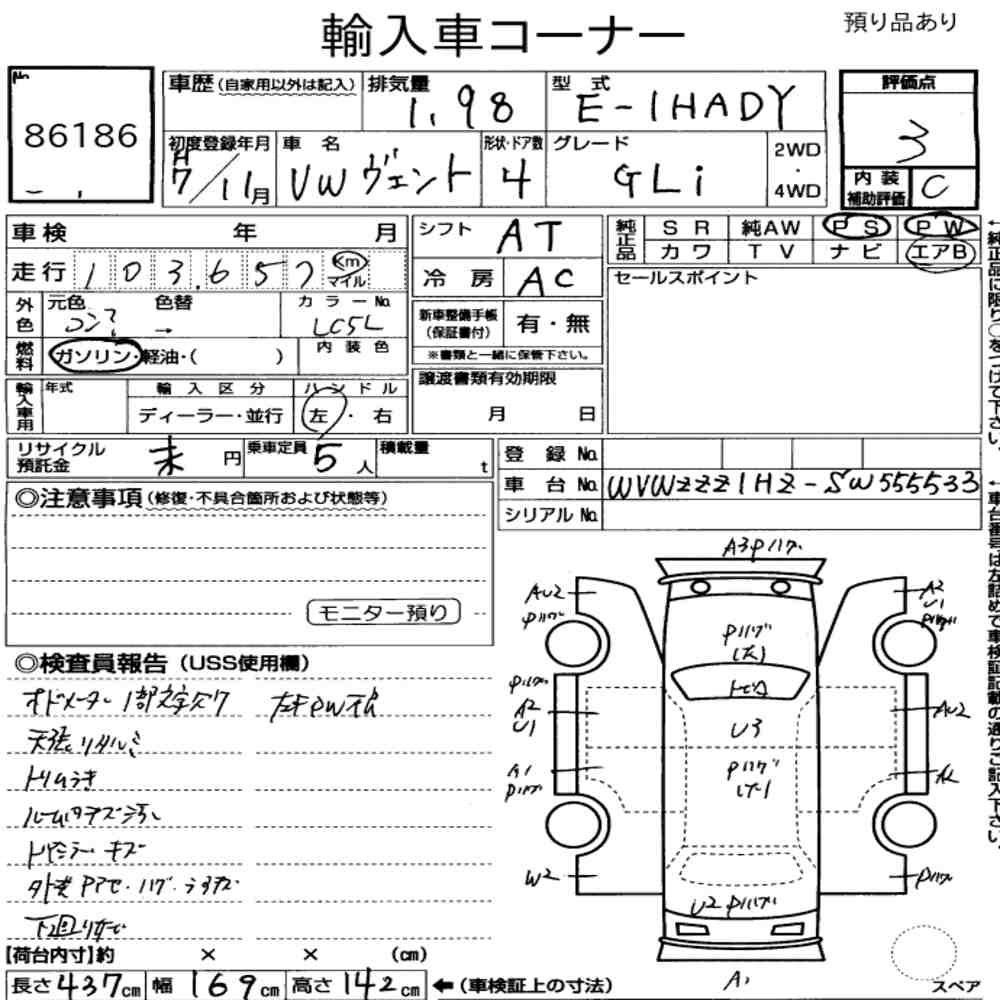 輸入車コーナー
預り品あり
No.
86186
車歴(自家用以外は記入)
排気量
1.98
型式
E-1HADY
評価点
3
初度登録年月
H7/11月
車名
VW ヴェント
形状・ドア数
4
グレード
GLi
2WD
・
4WD
内装
補助評価
C
車検 年 月
走行 103,657 Km
マイル
シフト AT
冷房 AC
純正品
SR 純AW PS PW
カワ TV ナビ エアB
←純正品に限り○をつけて下さい。
セールスポイント
外色
元色 色替
コン
→
カラーNo.
LC5L
新車整備手帳
(保証書付)
有・無
※書類と一緒に保管下さい。
燃料
ガソリン・軽油・( )
内装色
譲渡書類有効期限
月 日
輸入車用
年式
輸入区分
ディーラー・並行
ハンドル
左・右
リサイクル
預託金
未 円
乗車定員
5人
積載量
t
登録No.
車台No. WVWZZZ1HZ-SW555533
シリアルNo.
←車台番号は左詰めで車検証記載の通りご記入下さい。
◎注意事項(修復・不具合箇所および状態等)
モニター預り
◎検査員報告(USS使用欄)
オドメーター1部文字欠ケ
左F PW不良
天張リタルミ
トリムウキ
ルーム内キズ汚レ
ドアミラーキズ
A3Pハゲ
AU2
Pハゲ
A2
U1
Pハゲ
Pハゲ
A2
U1
A1
Pハゲ
W2
Pハゲ
U3
Pハゲ
AU2
Pハゲ
U2 Pハゲ
A1
【荷台内寸】約 × × (cm)
長さ437cm 幅169cm 高さ142cm ←(車検証上の寸法)
スペア